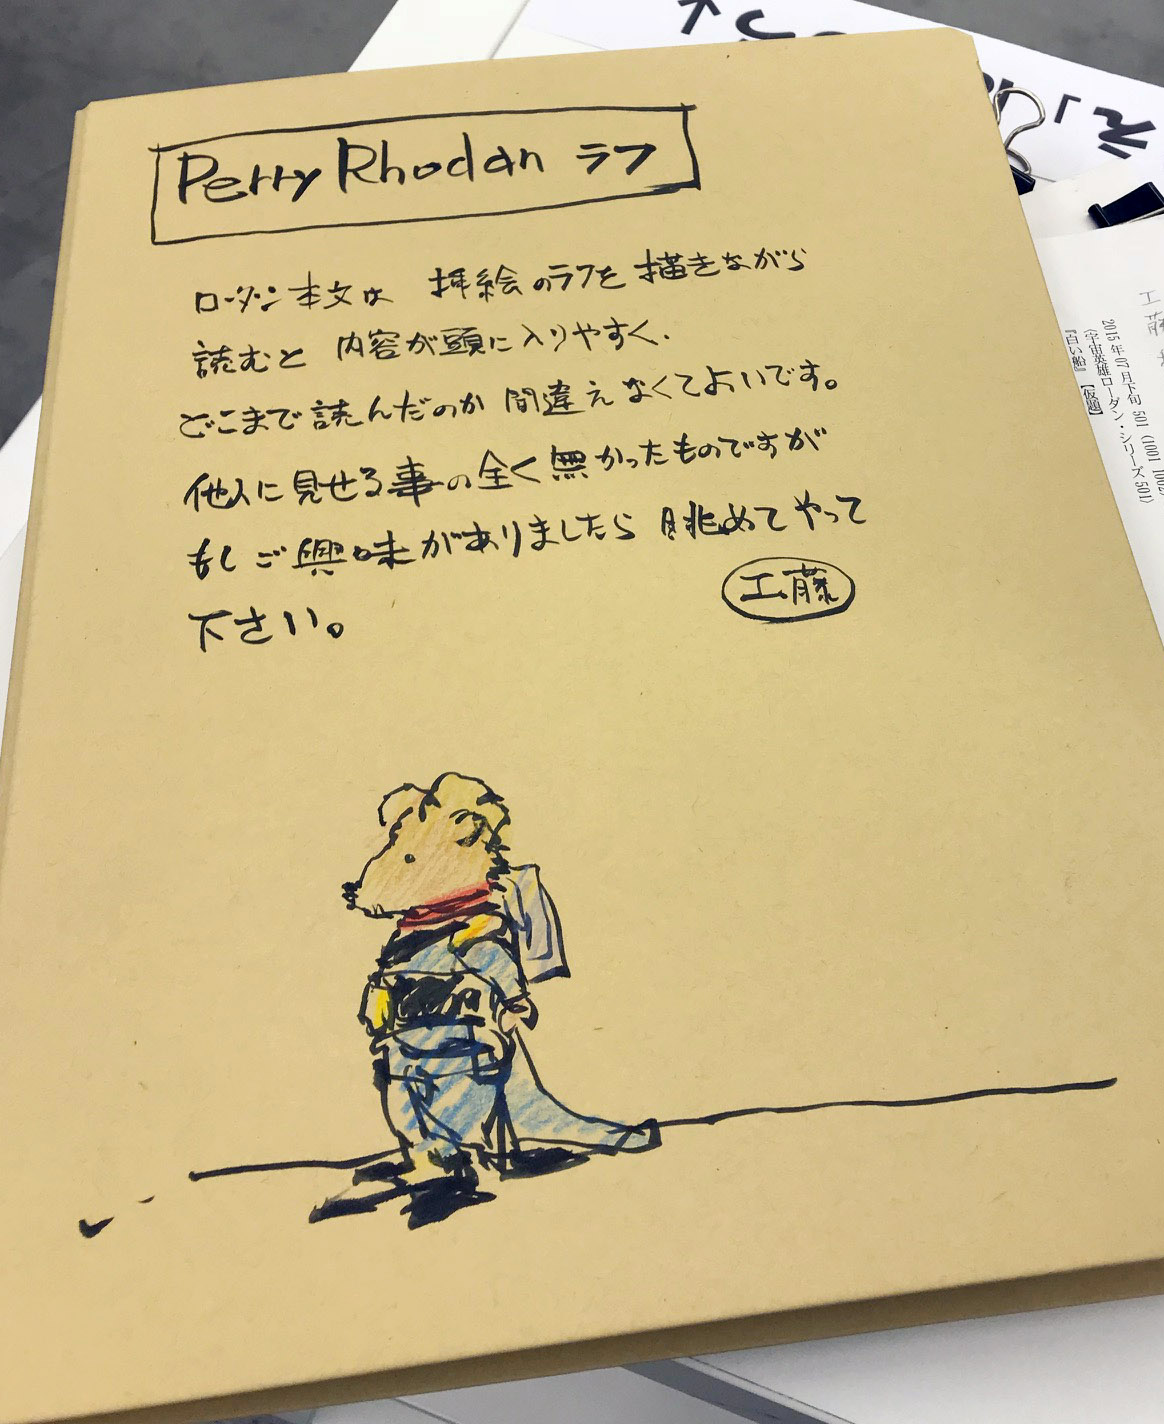 Perry Rhodan ラフ
ローダン本文は 挿絵のラフを描きながら
読むと 内容が頭に入りやすく、
どこまで読んだのか間違えなくてよいです。
他人に見せる事の全く無かったものですが
もしご興味がありましたら 眺めてやって
下さい。
工藤
工藤
2015年07月下旬 501 (1001 1002)
〈宇宙英雄ローダン・シリーズ 501〉
『白い船』【仮題】